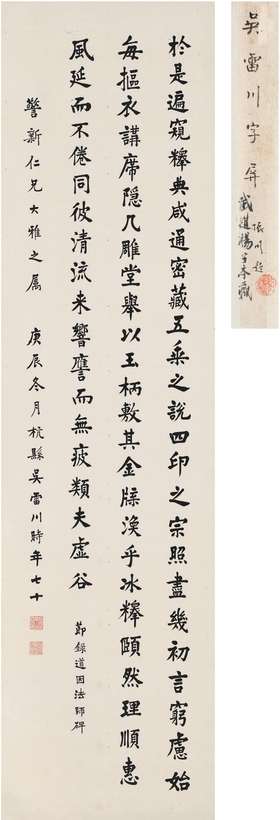 於是遍窺釋典咸通密藏五乘之說四印之宗照盡幾初言窮慮始
每摳衣講席隱几雕堂舉以玉柄敷其金牒渙乎冰釋頤然理順惠
風延而不倦同彼清流来響譍而無疲類夫虛谷
節錄道因法師碑
警新仁兄大雅之属
庚辰冬月杭縣吳雷川時年七十
吳雷川字屏
武進楊子本藏